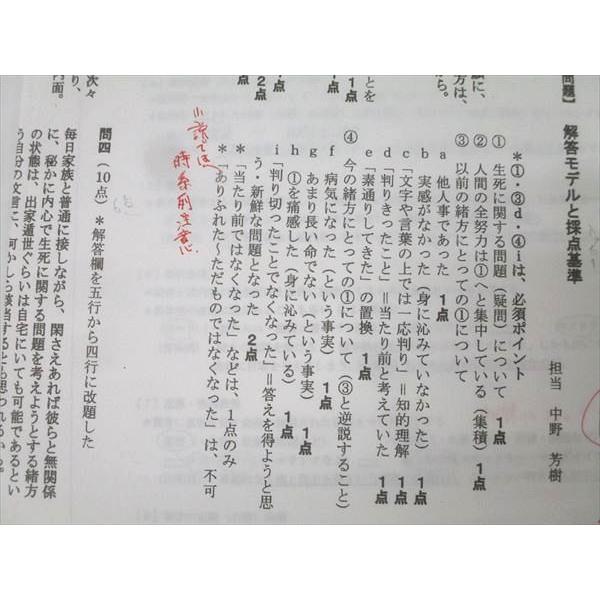 問題】 解答モデルと採点基準
担当 中野 芳樹
*①・③d・④iは、必須ポイント
① 生死に関する問題(疑問)について 1点
② 人間の全努力は①へと集中している(集積) 1点
③ 以前の緒方にとっての①について
a 他人事であった 1点
b 実感がなかった(身に沁みていなかった) 1点
c 「文字や言葉の上では一応判り」=知的理解 1点
d 「判りきったこと」=当たり前と考えていた 1点
e 「素通りしてきた」の置換 1点
④ 今の緒方にとっての①について(③と逆説すること)
f 病気になった(という事実) 1点
g あまり長い命でない(という事実) 1点
h ①を痛感した(身に沁みている) 1点
i 「判り切ったことでなくなった」=答えを得ようと思
う・新鮮な問題となった 2点
*「当たり前ではなくなった」などは、1点のみ
*「ありふれた〜ただものではなくなった」は、不可
小説では
時系列注意
問四(10点) *解答欄を五行から四行に改題した
毎日家族と普通に接しながら、閑さえあれば彼らと無関係
に、秘かに内心で生死に関する問題を考えようとする緒方
の状態は、出家遁世ぐらいは自宅にいても可能であるとい
う自分の文言に、何かしら該当するとも思われるから。